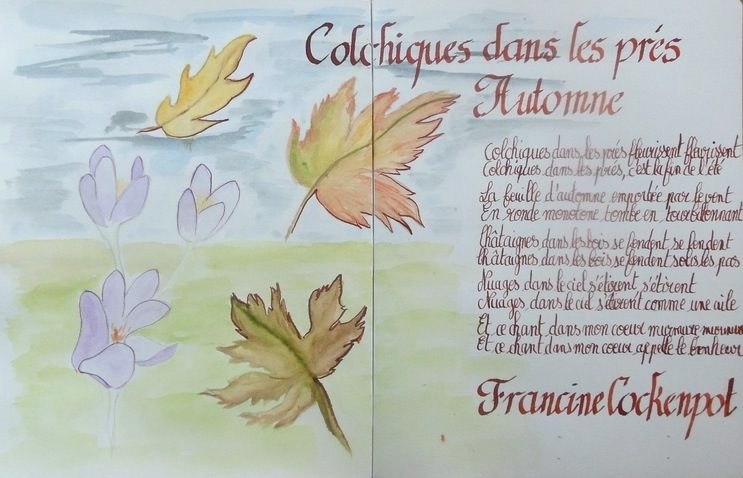 Colchiques dans les prés
Automne
Colchiques dans les prés fleurissent fleurissent
Colchiques dans les prés, c'est la fin de l'été
La feuille d'automne emportée par le vent
En ronde monotone tombe en tourbillonnant
Châtaignes dans les bois se fendent se fendent
Châtaignes dans les bois se fendent sous les pas
Nuages dans le ciel s'étirent, s'étirent
Nuages dans le ciel s'étirent comme une aile
Et ce chant dans mon coeur murmure murmure
Et ce chant dans mon coeur appelle le bonheur
Francine Cockenpot